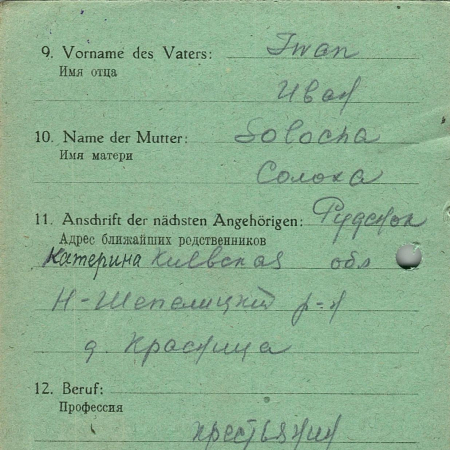 9. Vorname des Vaters: Iwan
Имя отца
Иван
10. Name der Mutter: Solocha
Имя матери
Солоха
11. Anschrift der nächsten Angehörigen: Руденок
Адрес ближайших родственников
Катерина Киевская обл
Н-Шепелицкий р-н
д. Красница
12. Beruf:
Профессия
крестьянин